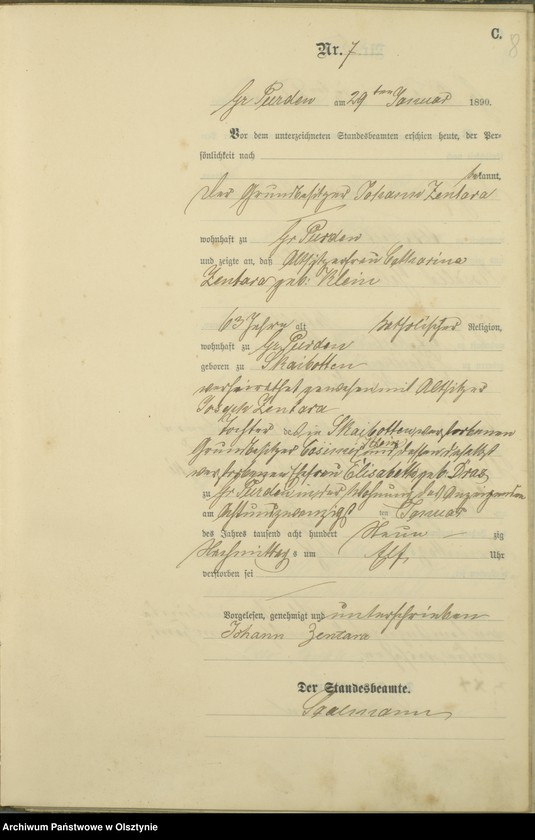 C.
8
Nr. 7
Gr Purden am 29 ten Januar 1890.
Vor dem unterzeichneten Standesbeamten erschien heute, der Per-
sönlichkeit nach
bekannt,
der Grundbesitzer Johann Zentara
wohnhaft zu Gr Purden
und zeigte an, daß Altsitzerfrau Catharina
Zentara geb. Klein
63 Jahre alt katholischer Religion,
wohnhaft zu Gr Purden
geboren zu Skaibotten
verheirathet gewesen mit Altsitzer
Joseph Zentara
Tochter des in Skaibotten verstorbenen
Grundbesitzer Klein und dessen daselbst
verstorbenen Ehefrau Elisabeth geb.
zu Gr Purden in der Wohnung des Anzeigenden
am Achtundzwanzigst den Januar
des Jahres tausend acht hundert Neun zig
Nachmittags um Elf Uhr
verstorben sei
Vorgelesen, genehmigt und unterschrieben
Johann Zentara
Der Standesbeamte.
Archiwum Państwowe w Olsztynie